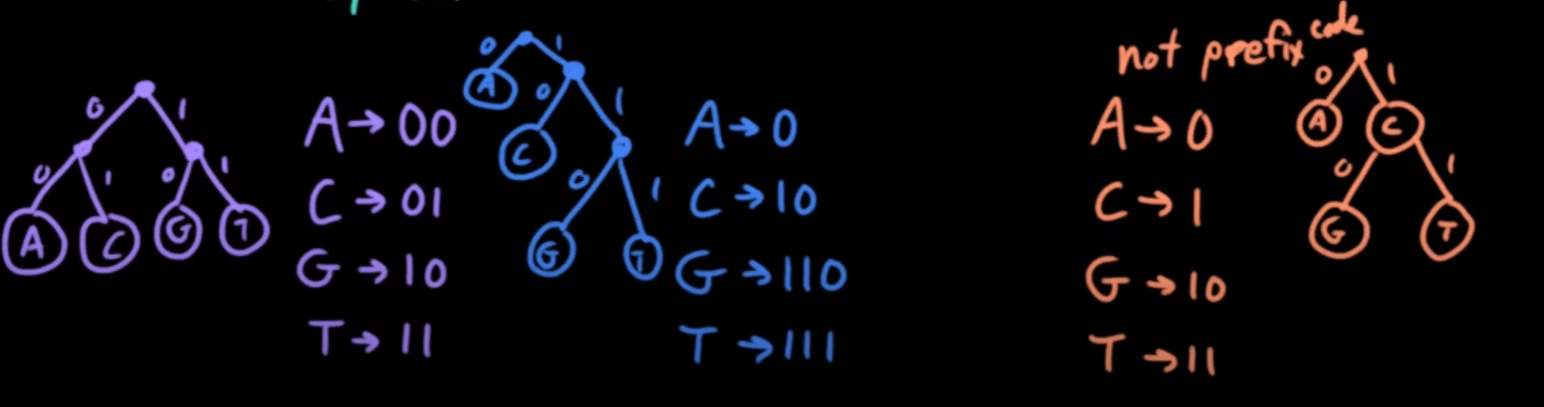 0 1
0 1 0 1
A C G T
A → 00
C → 01
G → 10
T → 11
0 1
A 0 1
C 0 1
G T
A → 0
C → 10
G → 110
T → 111
not prefix code
A → 0
C → 1
G → 10
T → 11
0 1
A C
0 1
G T